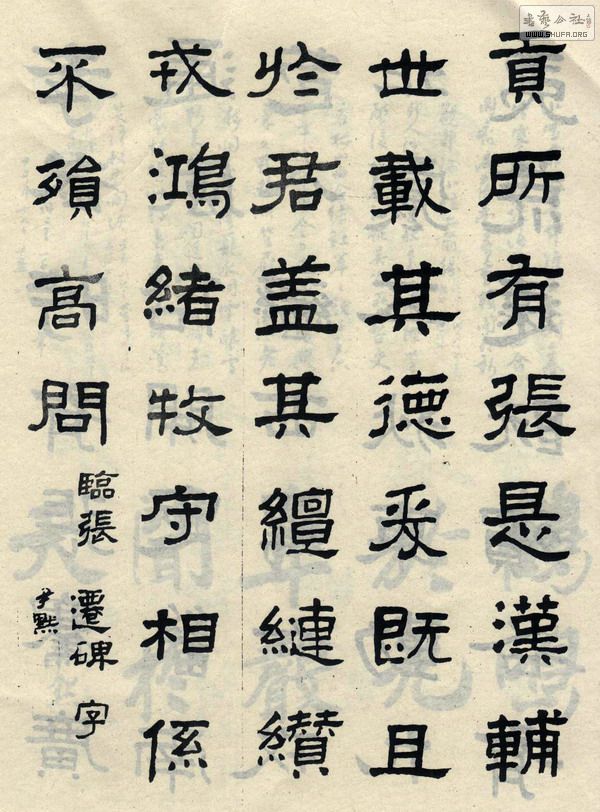 貢所有張是漢輔
世載其德爰既且
於君盖其繵縺纘
戎鴻緒牧守相係
不殞高問
臨張遷碑字
尹默
書藝公社
WWW.SHUFA.ORG